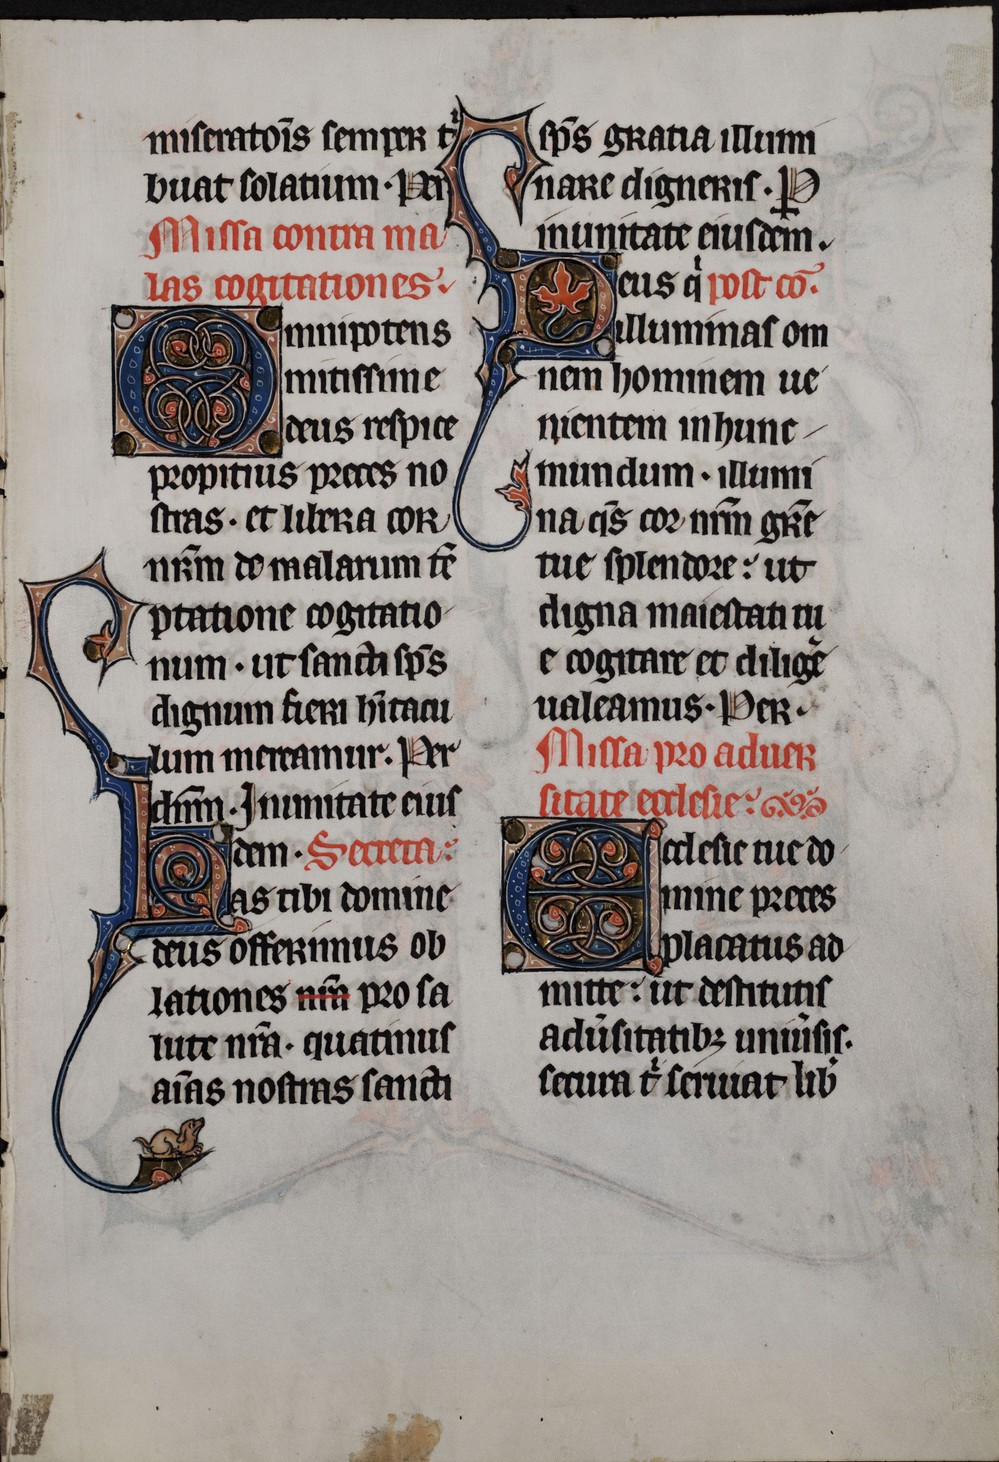 miseratoīs semper tⁱ
buat solatium · Per
Missa contra ma
las cogitationes
Omnipotens
mitissime
deus respice
propitius preces no
stras · et libera cor
nr̄m de malarum tē
ptatione cogitatio
num · ut sancti sp̄s
dignum fieri hītacu
lum mereamur · Per
dn̄m · In unitate eius
dem · Secreta
Has tibi domine
deus offerimus ob
lationes nr̄a pro sa
lute nr̄a · quatinus
aīas nostras sancti
sp̄s gratia illumi
nare digneris · P
in unitate eiusdem ·
Deus qⁱ post cō ·
illuminas om
nem hominem ue
nientem in hunc
mundum · illumi
na qs̄ cor nr̄m grē
tue splendore : ut
digna maiestati tu
e cogitare et diligē
ualeamus · Per ·
Missa pro aduer
sitate ecclesie :
Ecclesie tue do
mine preces
placatus ad
mitte : ut destitutis
adūsitatibꝫ uniūsis ·
secura tⁱ seruiat lib